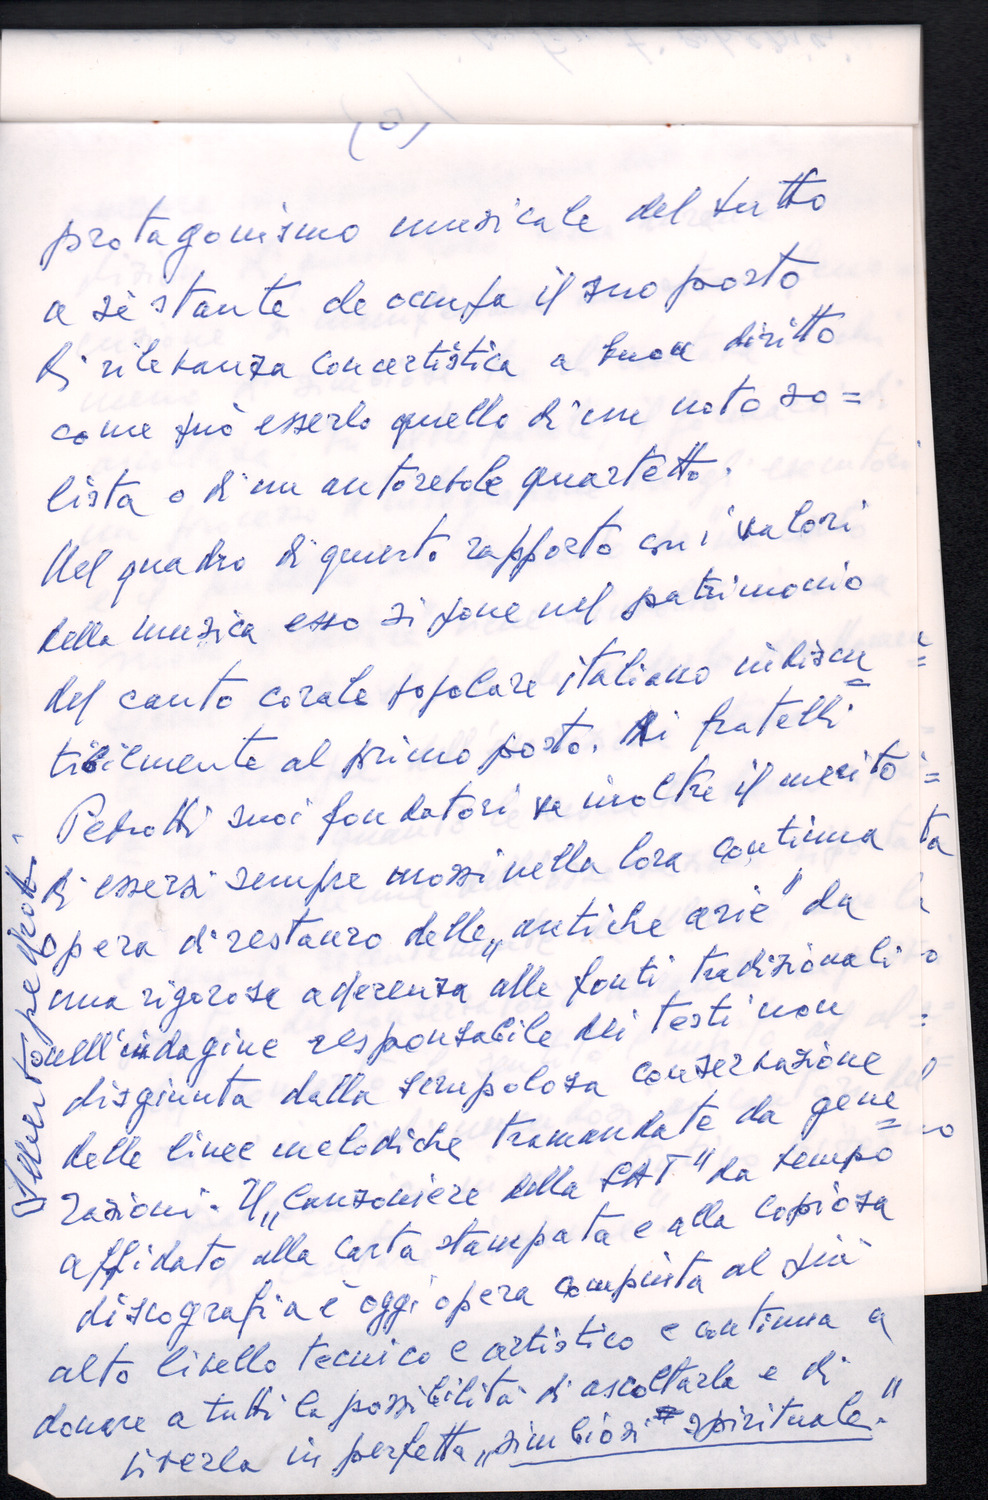 (6)
protagonismo musicale del tutto
a sè stante che occupa il suo posto
di rilevanza concertistica a buon diritto
come può esserlo quello di un noto so=
lista o di un autorevole quartetto.
Nel quadro di questo rapporto con i valori
della musica esso si pone nel patrimonio
del canto corale popolare italiano indiscu=
tibilmente al primo posto. Ai fratelli
Pedrotti suoi fondatori va inoltre il merito
di essersi sempre mossi nella loro continua
opera di restauro delle „antiche arie" da
una rigorosa aderenza alle fonti tradizionali
nell'indagine responsabile dei testi non
disgiunta dalla scrupolosa conservazione
delle linee melodiche tramandate da gene=
razioni. Il „Canzoniere della SAT" da tempo
affidato alla carta stampata e alla copiosa
discografia è oggi opera compiuta al più
alto livello tecnico e artistico e continua a
donare a tutti la possibilità di ascoltarla e di
viverla in perfetta „simbiosi spirituale."
Silvio Pedrotti